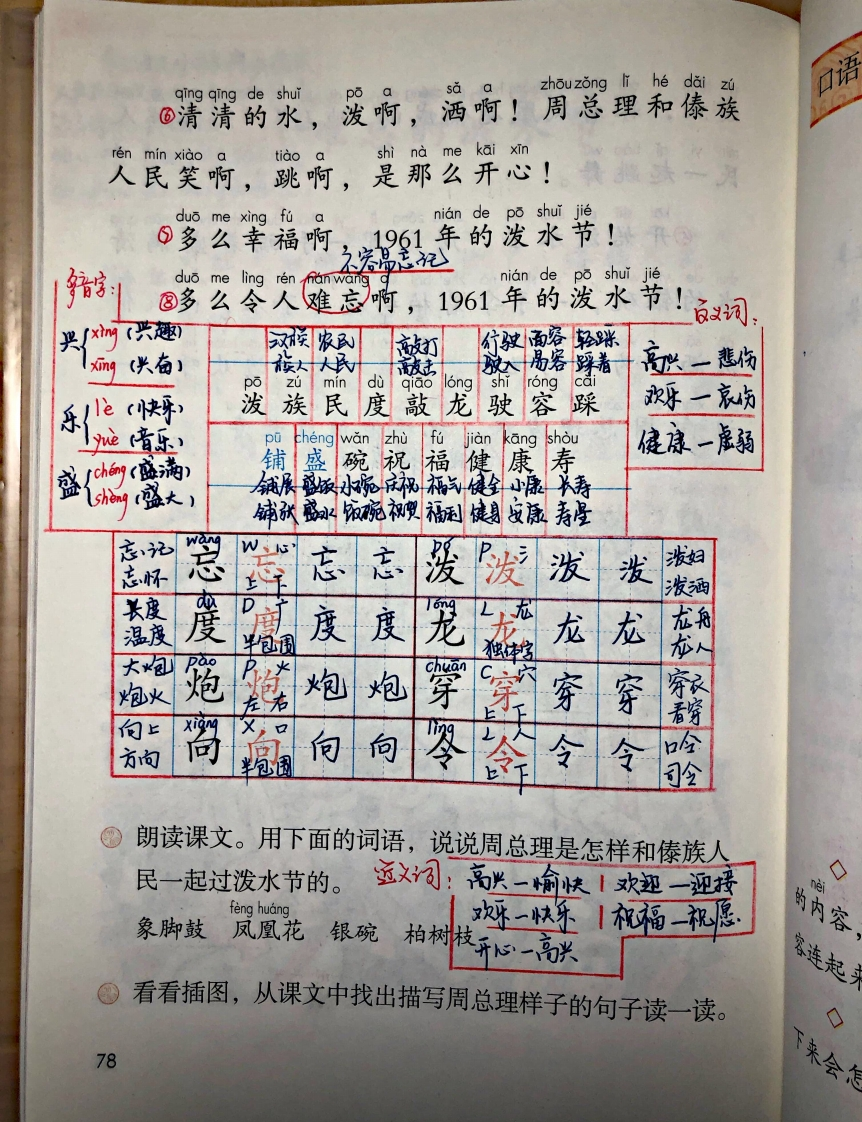 qīng qīng de shuǐ pō a sǎ a zhōu zǒng lǐ hé dǎi zú
⑥清清的水，泼啊，洒啊！周总理和傣族
rén mín xiào a tiào a shì nà me kāi xīn
人民笑啊，跳啊，是那么开心！
duō me xìng fú a nián de pō shuǐ jié
⑦多么幸福啊，1961年的泼水节！
不容易忘记
duō me lìng rén nán wàng a nián de pō shuǐ jié
⑧多么令人难忘啊，1961年的泼水节！
多音字：
兴 xìng (兴趣)
xīng (兴奋)
乐 lè (快乐)
yuè (音乐)
盛 chéng (盛满)
shèng (盛大)
汉族 农民 敲打 行驶 面容 轻踩
族人 人民 敲击 驶入 易容 踩着
pō zú mín dù qiāo lóng shǐ róng cǎi
泼 族 民 度 敲 龙 驶 容 踩
pū chéng wǎn zhù fú jiàn kāng shòu
铺 盛 碗 祝 福 健 康 寿
铺展 盛饭 小碗 庆祝 福气 健全 小康 长寿
铺张 盛水 饭碗 祝贺 福利 健身 安康 寿星
反义词：
高兴—悲伤
欢乐—哀伤
健康—虚弱
忘记 忘怀 wàng 忘 W 心 忘 上下 忘 忘 pō 泼 P 氵 泼 泼 泼 泼妇 泼洒
长度 温度 dù 度 D 广 度 半包围 度 度 lóng 龙 L 龙 龙 独体字 龙 龙 龙舟 龙人
大炮 炮火 pào 炮 P 火 炮 左右 炮 炮 chuān 穿 C 穴 穿 上下 穿 穿 穿衣 看穿
向上 方向 xiàng 向 X 口 向 半包围 向 向 lìng 令 L 人 令 上下 令 令 口令 司令
朗读课文。用下面的词语，说说周总理是怎样和傣族人
民一起过泼水节的。
近义词：
高兴—愉快 欢迎—迎接
欢乐—快乐 祝福—祝愿
开心—高兴
fèng huáng
象脚鼓 凤凰花 银碗 柏树枝
看看插图，从课文中找出描写周总理样子的句子读一读。
78
口语
nèi
的内容，
容连起来
下来会怎